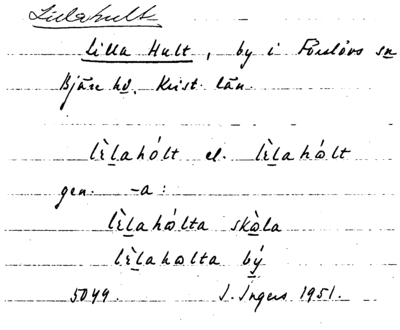 Lillahult
Lilla Hult, by i Förslövs sn
Bjäre hd. Krist. län.
lèlahólt el. lèlahålt
gen. -a:
lèlahólta skòla
lèlahålta bý
5049. I. Ingers 1951.